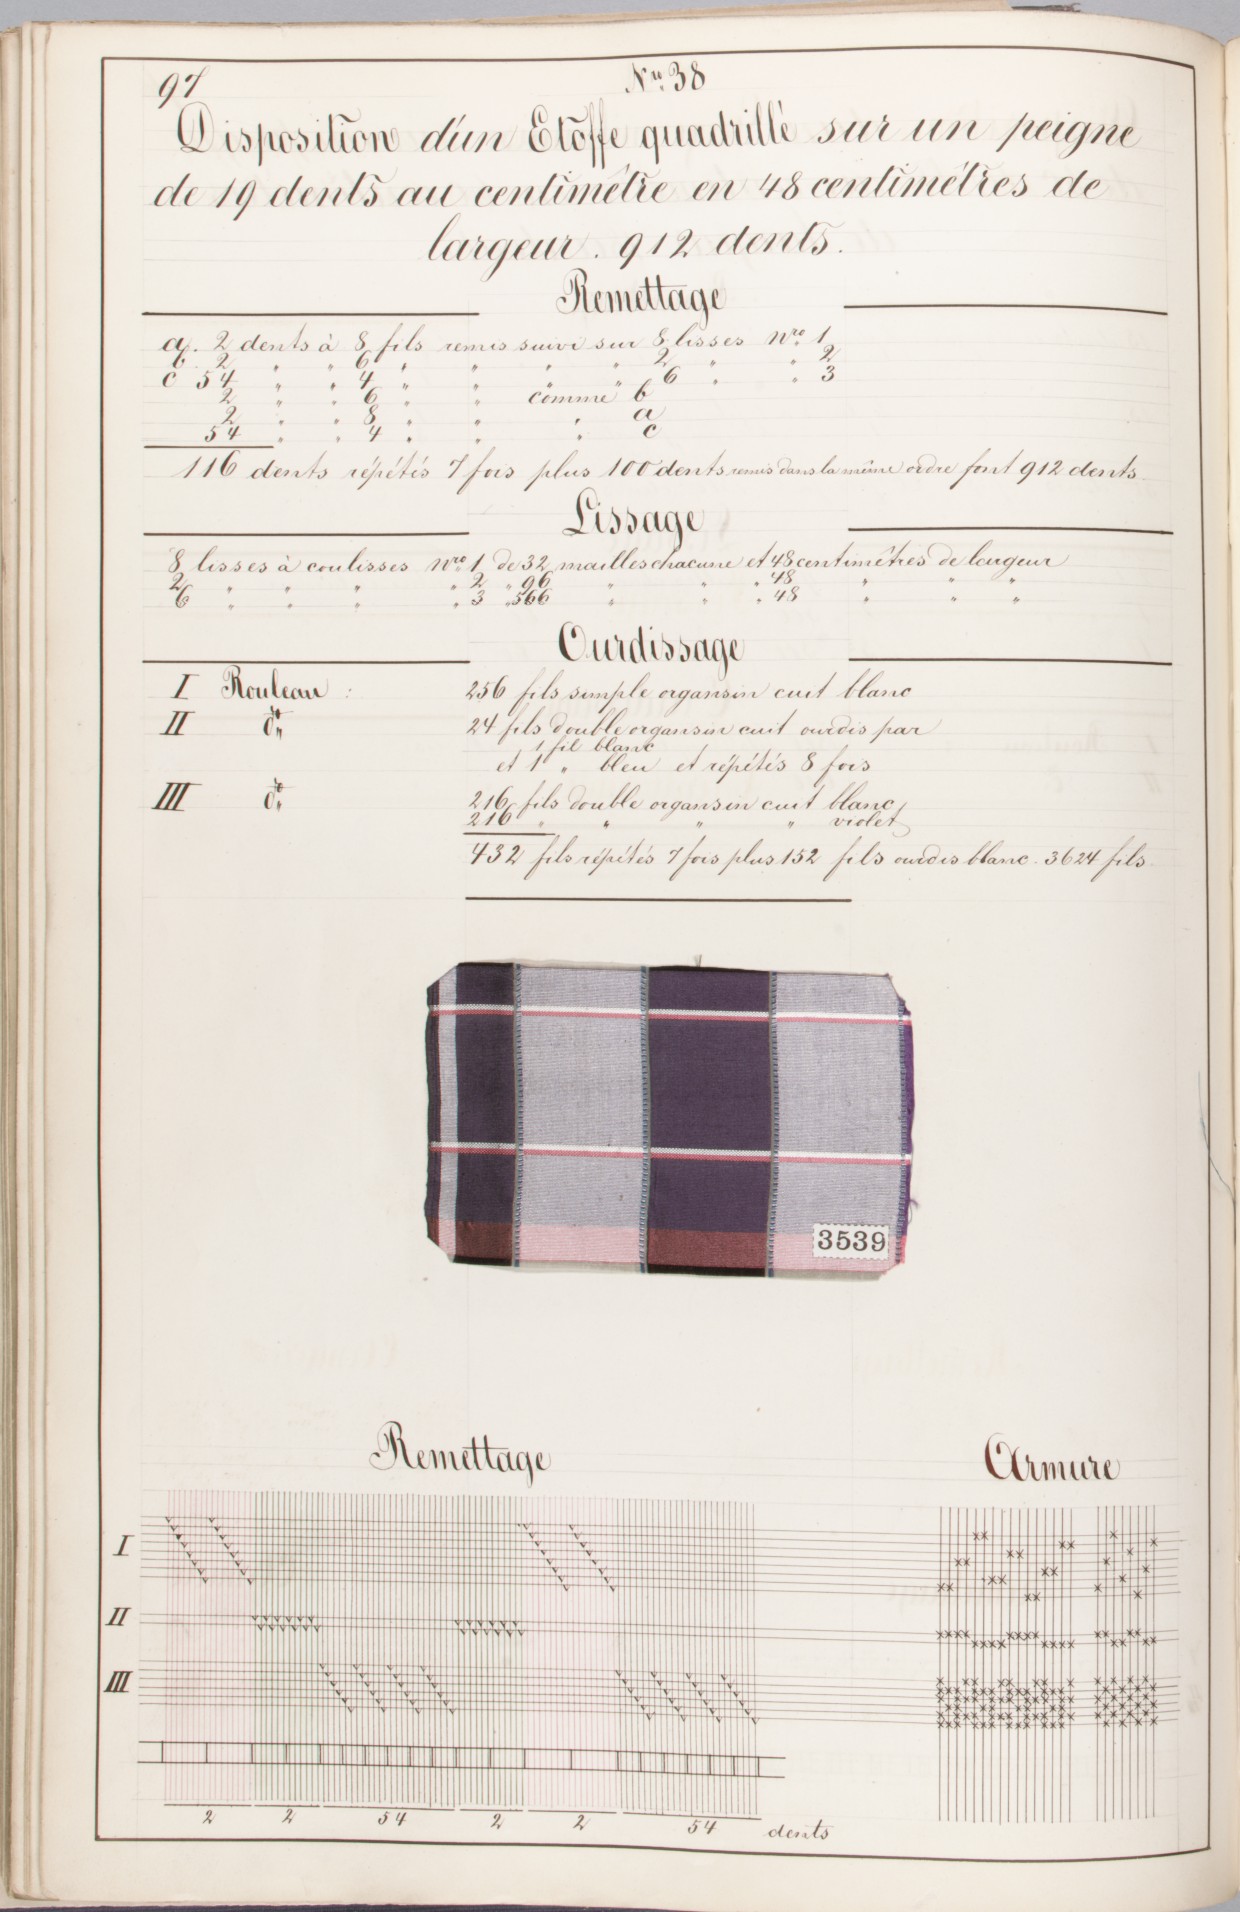 97
Nº 38
Disposition d'un Etoffe quadrillé sur un peigne
de 19 dents au centimétre en 48 centimétres de
largeur. 912 dents.
Remettage
a. 2 dents à 8 fils remis suivi sur 8 lisses Nro 1
b 2 " " 6 " " " " 2 " " 2
c 54 " " 4 " " " " 6 " " 3
2 " " 6 " " comme b
2 " " 8 " " " a
54 " " 4 " " " c
116 dents répétés 7 fois plus 100 dents remis dans la même ordre font 912 dents
Lissage
8 lisses à coulisses Nro 1 de 32 mailles chacune et 48 centimêtres de largeur
2 " " " " 2 " 96 " " " 48 " " "
6 " " " " 3 " 566 " " " 48 " " "
Ourdissage
I Rouleau : 256 fils simple organsin cuit blanc
II do 24 fils double organsin cuit ourdis par
1 fil blanc
et 1 " bleu et répétés 8 fois
III do 216 fils double organsin cuit blanc
216 " " " " violet
432 fils répétés 7 fois plus 152 fils ourdis blanc. 3624 fils
3539
Remettage
Armure
I
II
III
2 2 54 2 2 54 dents